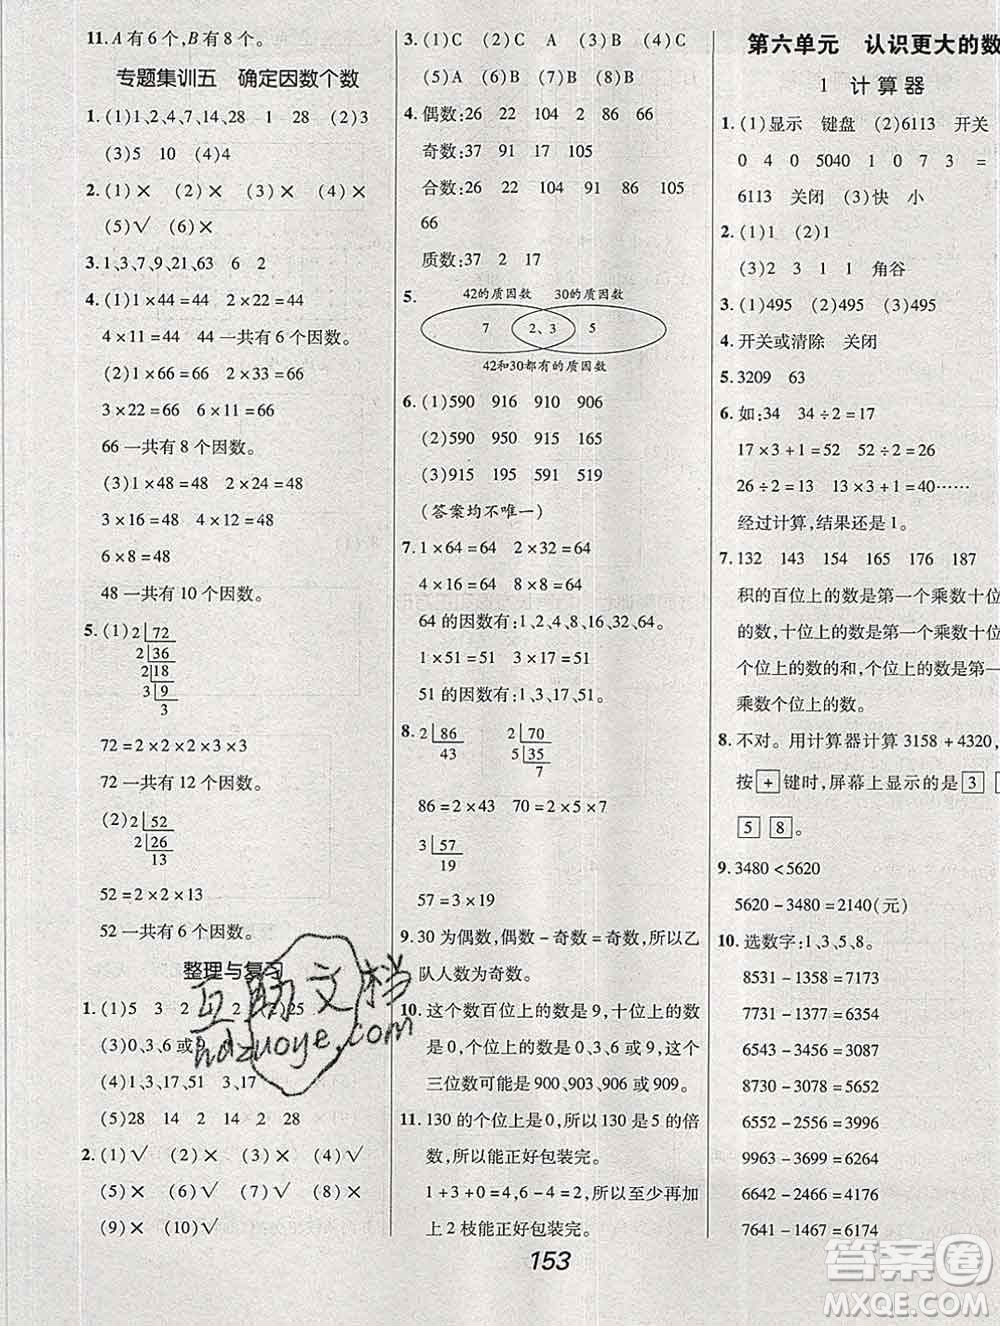 11. A有6个,B有8个。
专题集训五　确定因数个数
1. (1)1、2、4、7、14、28　1　28　(2)3
(3)5　10　(4)4
2. (1)×　(2)×　(3)×　(4)×
(5)√　(6)×
3. 1、3、7、9、21、63　6　2
4. (1)1×44=44　2×22=44
4×11=44　44一共有6个因数。
(2)1×66=66　2×33=66
3×22=66　6×11=66
66一共有8个因数。
(3)1×48=48　2×24=48
3×16=48　4×12=48
6×8=48
48一共有10个因数。
5. (1) 2 72
2 36
2 18
3 9
3
72=2×2×2×3×3
72一共有12个因数。
(2) 2 52
2 26
13
52=2×2×13
52一共有6个因数。
整理与复习
1. (1)5　3　2
25
(3)0、3、6或
(4)1、2　41、53　3、17
(5)28　14　2　14　2　28
2. (1)√　(2)×　(3)×　(4)√
(5)×　(6)√　(7)√　(8)×
(9)×　(10)√
3. (1)C　(2)C　A　(3)B　(4)C
(5)A　(6)B　(7)C　(8)C
4. 偶数:26　22　104　2　86　66
奇数:37　91　17　105
合数:26　22　91　104　86　105
66
质数:37　2　17
5. 42的质因数　30的质因数
7　2、3　5
42和30都有的质因数
6. (1)590　916　910　906
(2)590　915　519　591
(3)915　195　591　519
(答案均不唯一)
7. 1×64=64　2×32=64
4×16=64　8×8=64
64的因数有:1、2、4、8、16、32、64。
1×51=51　3×17=51
51的因数有:1、3、17、51。
8. 2 86　2 70
43　5 35
7
86=2×43　70=2×5×7
3 57
19
57=3×19
9. 30为偶数,偶数-奇数=奇数,所以乙
队人数为奇数。
10. 这个数百位上的数是9,十位上的数
是0,个位上的数是0、3、6或9,这个
三位数可能是900、903、906或909。
11. 130的个位上是0,所以130是5的倍
数,所以能正好包装完。
1+3+0=4,6-4=2,所以至少再加
上2枝能正好包装完。
第六单元　认识更大的数
1　计算器
1. (1)显示　键盘　(2)6113　开关
0　4　0　5040　1　0　7　3　=
6113　关闭　(3)快　小
2. (1)1　(2)1
(3)2　1　3　1　1　角谷
3. (1)495　(2)495　(3)495
4. 开关或清除　关闭
5. 3209　63
6. 如:34　34÷2=17
17×3+1=52　52÷2=26
26÷2=13　13×3+1=40……
经过计算,结果还是1。
7. 132　143　154　165　176　187
积的百位上的数是第一个乘数十位
的数,十位上的数是第一个乘数十
个位上的数的和,个位上的数是第一
乘数个位上的数。
8. 不对。用计算器计算3158+4320,
按+键时,屏幕上显示的是3
5 8。
9. 3480<5620
5620-3480=2140(元)
10. 选数字:1、3、5、8。
8531-1358=7173
7731-1377=6354
6543-3456=3087
8730-3078=8352
6552-2556=3996
9963-3699=6264
6642-2466=4176
7641-1467=6174
153
互助文档
hdzuoye.com
答案圈
MXQE.COM